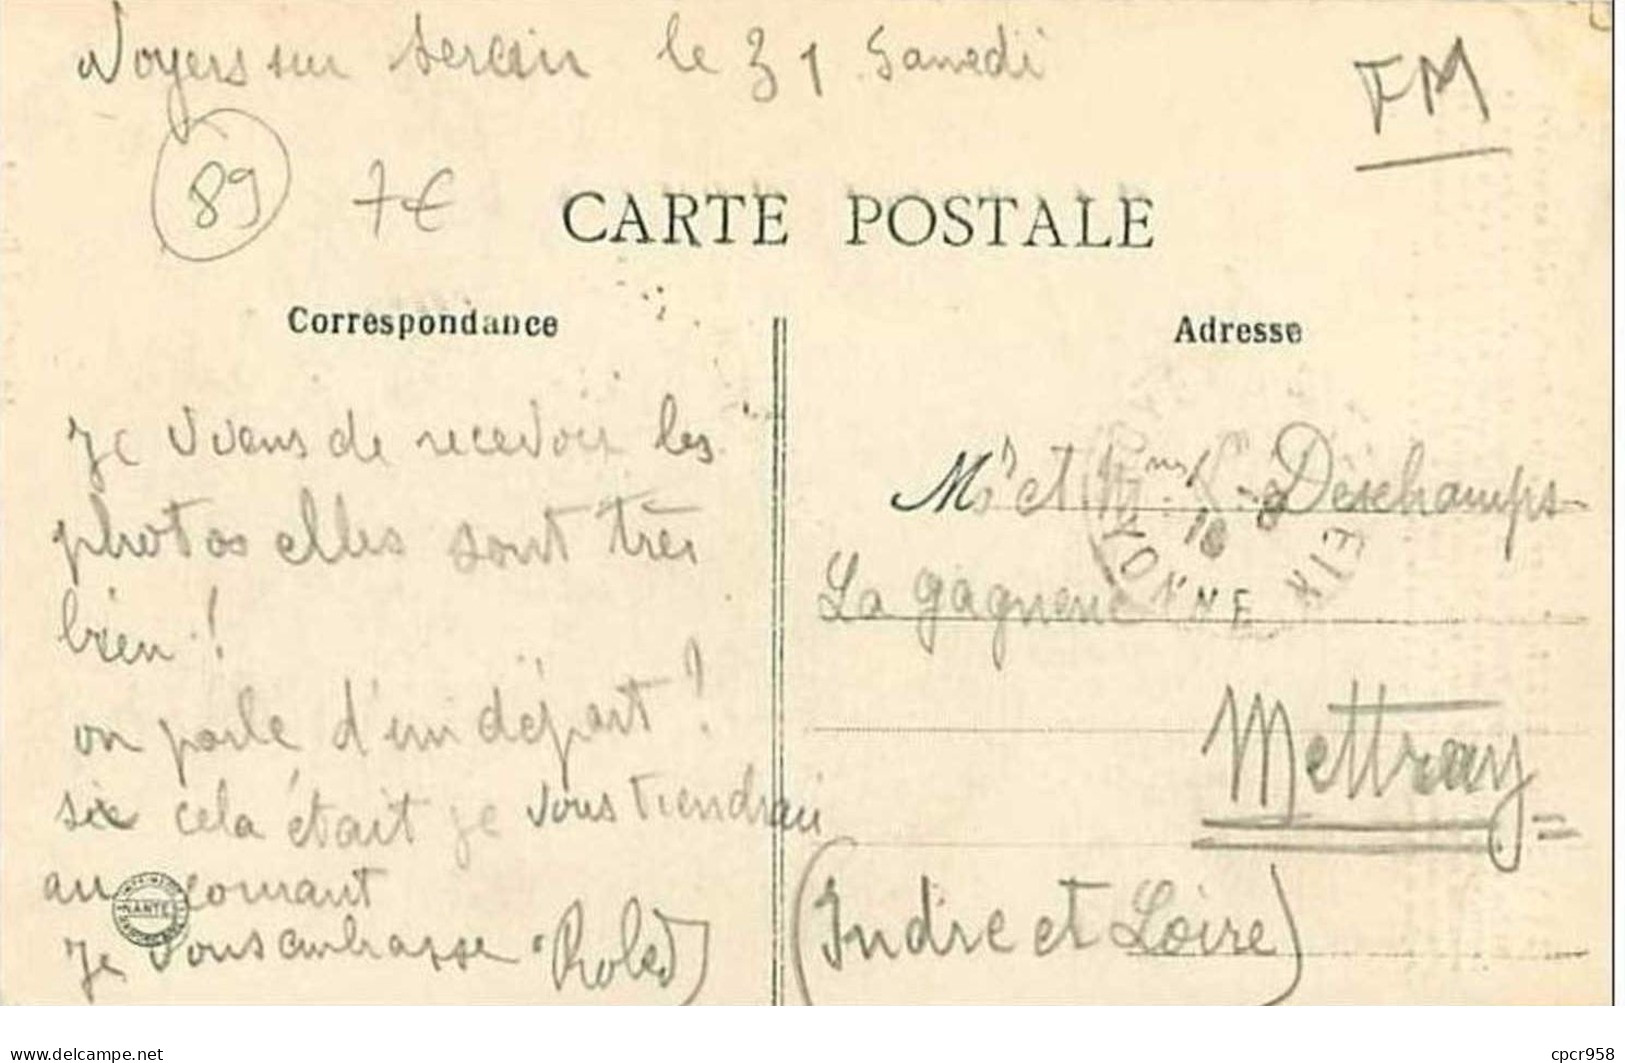 Noyers sur Serein le 31 Samedi
FM
89 7€
CARTE POSTALE
Correspondance
Adresse
Je viens de recevoir les
photos elles sont très
bien !
on parle d'un départ !
six cela était je vous tiendrai
au courant
Je vous embrasse
Mr et Deschamps
La gagnerie
Mettray
(Indre et Loire)
YONNE
16
NANTES
delcampe.net
cpcr958